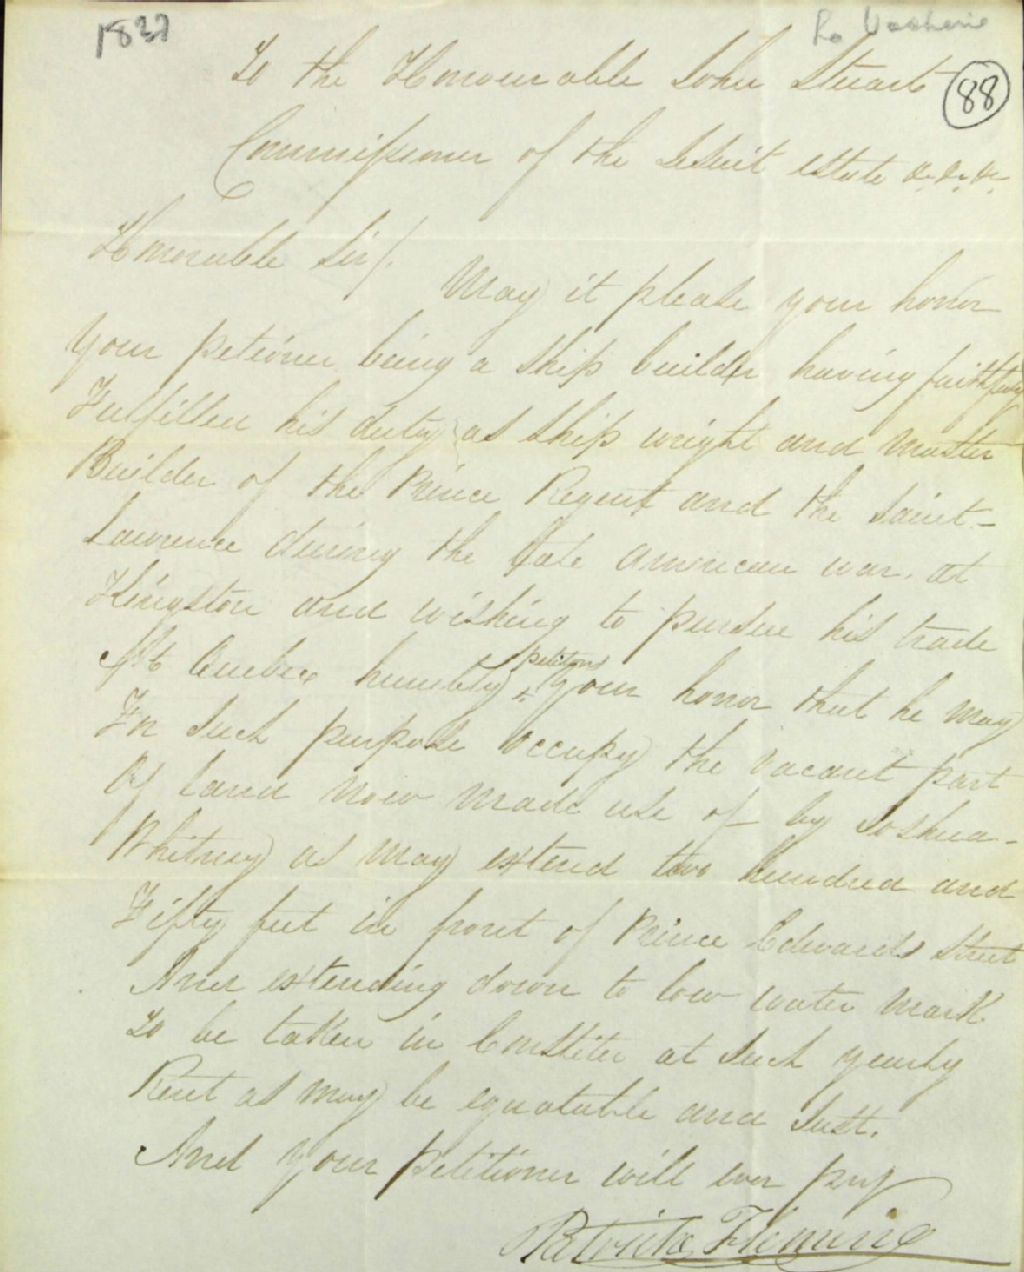 1831
La Vacherie
88
To the Honourable John Stuart
Commissioner of the Jesuit estate &c. &c. &c.
Honorable Sir/.
May it please your honor
your petioner being a ship builder having faithfuly
Fulfilled his duty as ship wright and master
Builder of the Prince Regent and the Saint-
Lawrence during the late american war. at
Kingston and wishing to pursue his trade
At Quebec humbly petitions your honor that he may
For such purpose occupy the vacant part
Of land now made use of by Joshua-
Whitney as may extend two hundred and
Fifty feet in front of Prince Edwards Street
And extending down to low water mark
To be taken in at such yearly
Rent as may be equatable and Just.
And your Petitioner will ever pray
Patrick Fleming